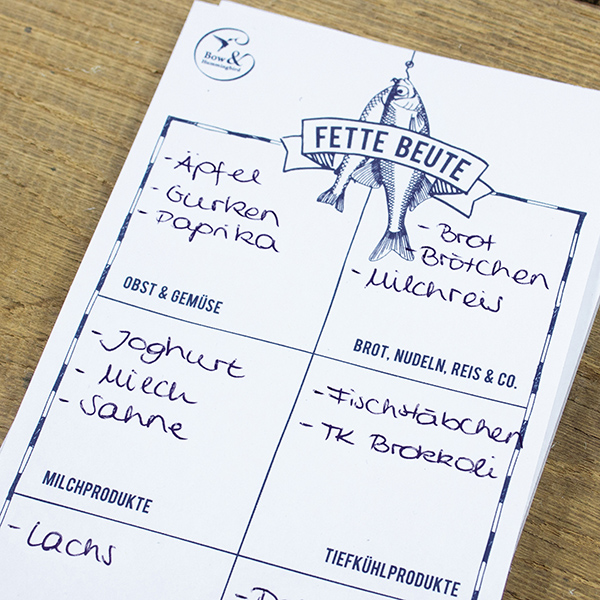 Bow &
Hummingbird
FETTE BEUTE
- Äpfel
- Gurken
- Paprika
OBST & GEMÜSE
- Brot
- Brötchen
- Milchreis
BROT, NUDELN, REIS & CO.
- Joghurt
- Milch
- Sahne
MILCHPRODUKTE
- Fischstäbchen
- TK Brokkoli
TIEFKÜHLPRODUKTE
- Lachs